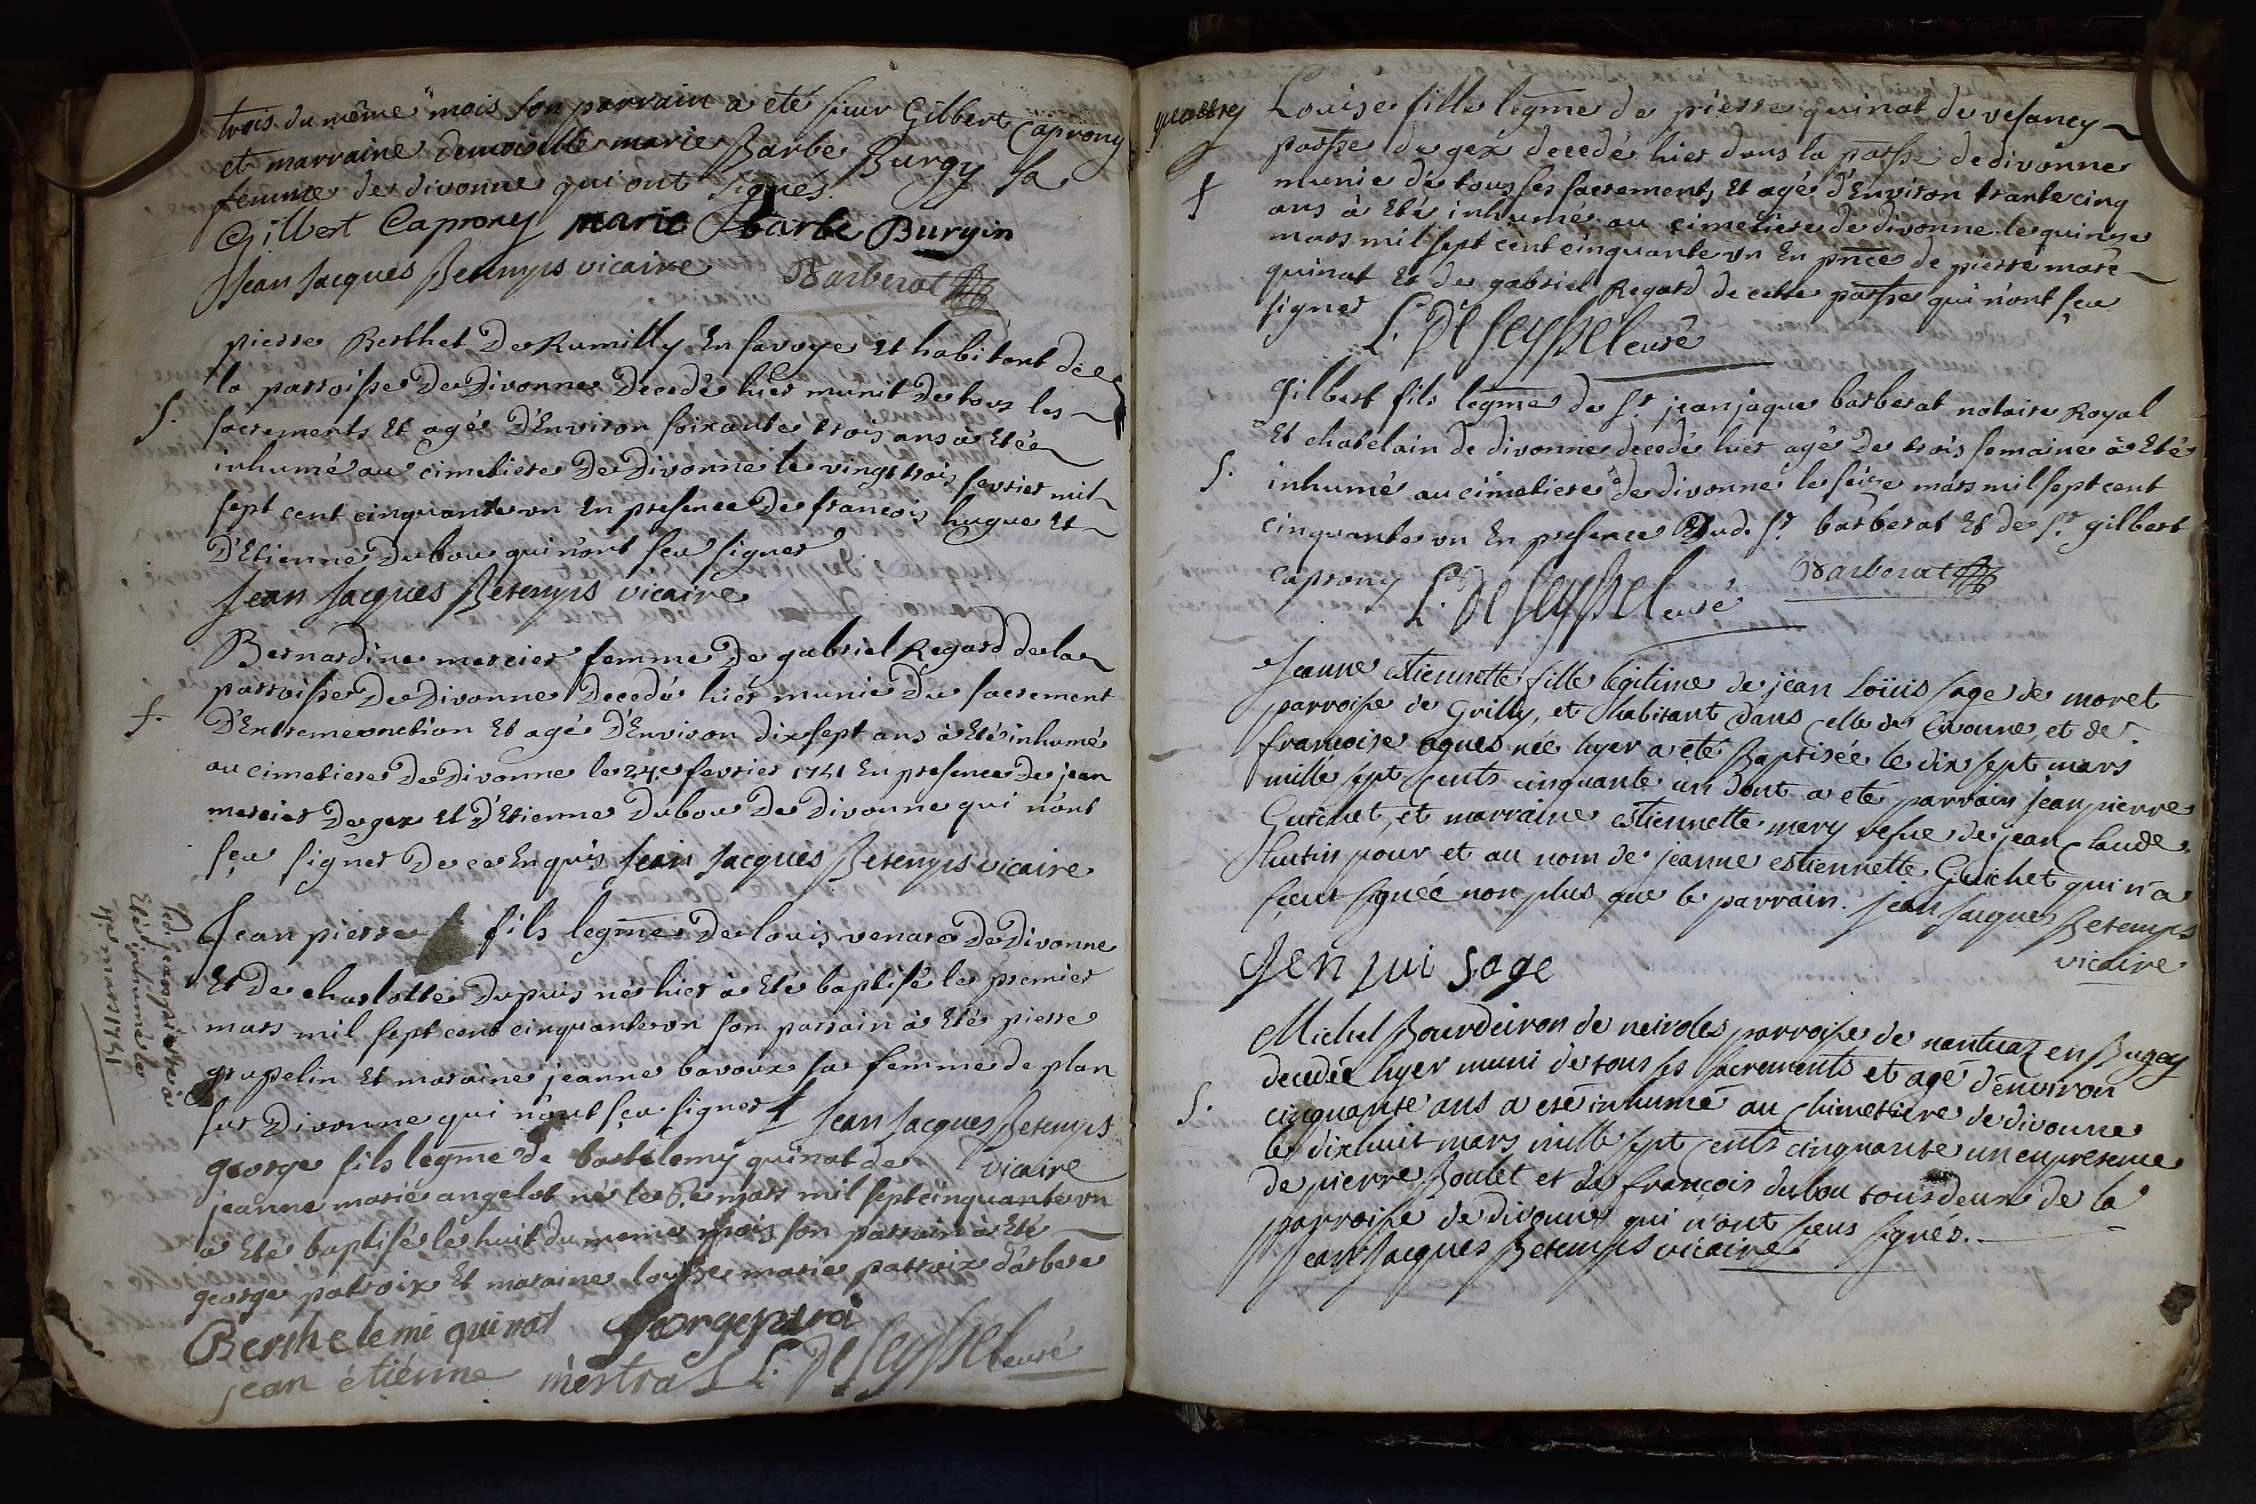 trois du même mois son parrain a eté sieur Gilbert Caprony
et marraine demoiselle marie Barbe Burgy sa
femme de divonne qui ont signés.
Gilbert Caprony marie barbe Burgin
Jean Jacques Betemps vicaire Barberat
pierre Berthet De Rumilly En savoye Et habitant de
la parroisse De Divonne Decedé hier munit De tous les
S. sacrements Et agé D'Environ soixante trois ans à Eté
inhumé au cimetiere De Divonne le vingt trois fevrier mil
sept cent cinquante un En presence De francois hugue Et
D'Etienne Dubou qui n'ont sçu signer
Jean Jacques Betemps vicaire
Bernardine mercier femme De gabriel Regard de la
parroisse De Divonne Decedé hier munie Du sacrement
f. D'Extremeonction Et agé D'Environ dix sept ans à Eté inhumé
au cimetiere De Divonne le 24e fevrier 1751 En presence De jean
mercier De gex Et D'Etienne Dubou De Divonne qui n'ont
sçu signer De ce Enquis Jean Jacques Betemps vicaire
Jean pierre fils legme De louis venare De Divonne
Et De charlotte Dupuis né hier à Eté baptisé le premier
mars mil sept cent cinquante un son parrain à Eté pierre
grupelin Et maraine jeanne bavoux sa femme de plan
sur Divonne qui n'ont sçu signer Jean Jacques Betemps
vicaire
led. jean pierre à
Eté inhumé le
mars 1751
george fils legme de bartelemy quinat de
jeanne marie angelot né le 6e mars mil sept cinquante un
a Eté baptisé le huit du meme mois son parrain à Eté
george patroix Et maraine louise marie patroix d'arbere
Berthelemi quinat jorge ptroi
jean étiénne mestral L. De Seyssel curé
quattrey
Louise fille legme de pierre quinat de vesancy
parsse de gex decedé hier dans la parsse de divonne
f munie de tous ses sacrements Et agé d'Environ trante cinq
ans à Eté inhumé au cimetiere de divonne le quinze
mars mil sept cent cinquante un En pnce de pierre mare
quinat Et de gabriel Regard de cette parsse qui n'ont sçu
signer L. De Seyssel curé
Gilbert fils legme de Sr jean jaque barberat notaire Royal
Et chatelain de divonne decedé hier agé de trois semaine à Eté
S. inhumé au cimetiere de divonne le seize mars mil sept cent
cinquante un En presence Dud. Sr barberat Et de Sr gilbert
caprony L. De Seyssel curé Barberat
Jeanne Etiennette fille legitime de jean Loüis sage de moret
parroisse de Grilly, et habitant dans celle de Divonne et de
francoise agnes née hyer a eté Baptisée le dix sept mars
mille sept cents cinquante un dont a eté parrain jean pierre
Guichet, et marraine estiennette mery vefue de jean claude
pour et au nom de jeanne estiennette Guichet qui n'a
sçeut signée non plus que le parrain. Jean Jacques Betemps
vicaire
Jen lui sage
Michel Bourdeiron de neirolles parroisse de nantuaz en Bugey
decedée hyer muni de tous ss sacrements et agé d'environ
S. cinquante ans a eté inhumé au chimetiere de divonne
le dixhuit mars mille sept cents cinquante un en presence
de pierre Boulet et de françois dubou tous deux de la
parroisse de divonne qui n'ont sçeus signés.
Jean Jacques Betemps vicaire